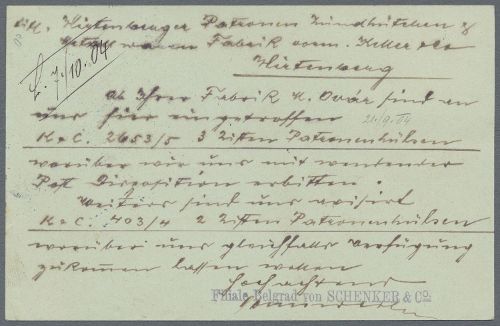 Hirtenberger Patronen Zündhütchen &
Metallwaren Fabrik vorm. Keller & Co
Hirtenberg
E. 7/10. 04
ab Ihrer Fabrik M. Óvár sind an
uns hier eingetroffen
K & C. 2653/5 3 Kisten Patronenhülsen
worüber wir uns mit wendender
Post Disposition erbitten.
Weiters sind uns avisirt
K & C. 403/4 2 Kisten Patronenhülsen
worüber uns gleichfalls Verfügung
zukommen lassen wollen
Hochachtend
Filiale Belgrad von SCHENKER & Co.